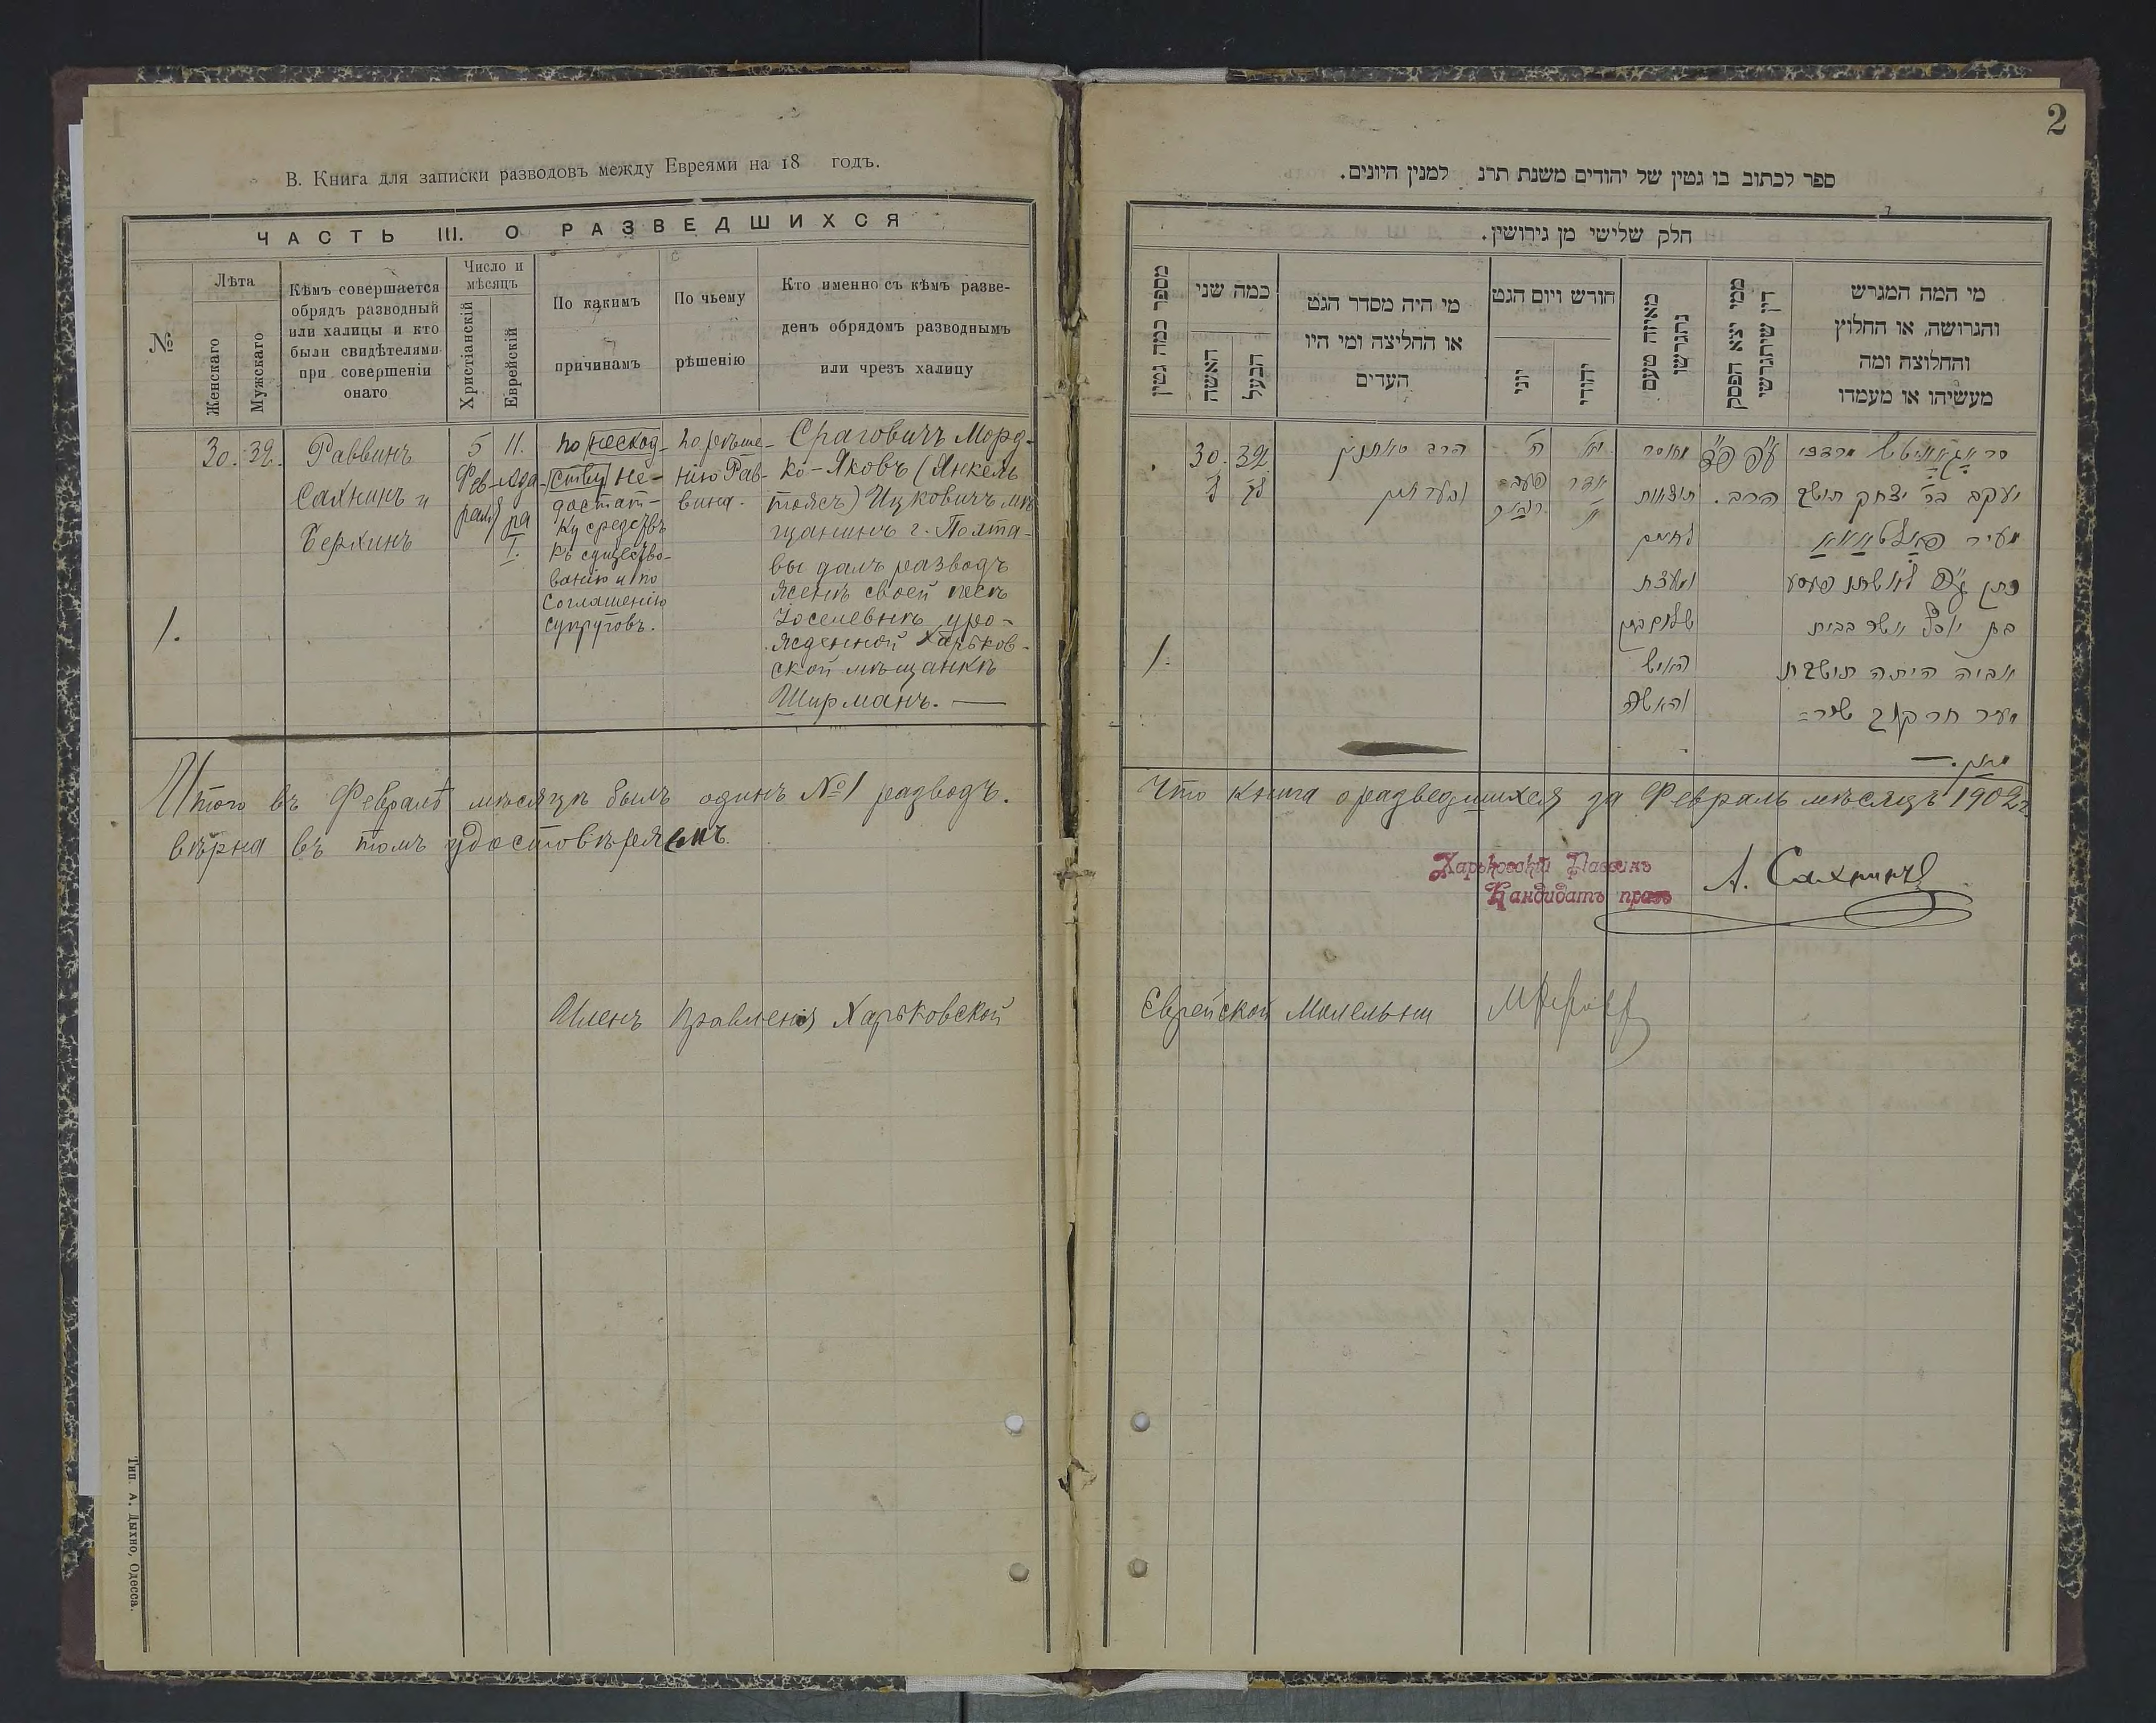 1
В. Книга для записки разводовъ между Евреями на 18 годъ.
ЧАСТЬ III. О РАЗВЕДШИХСЯ
№
Лѣта
Женскаго
Мужскаго
Кѣмъ совершается
обрядъ разводный
или халицы и кто
были свидѣтелями
при совершеніи
онаго
Число и
мѣсяцъ
Христіанскій
Еврейскій
По какимъ
причинамъ
По чьему
рѣшенію
Кто именно съ кѣмъ разве-
денъ обрядомъ разводнымъ
или чрезъ халицу
1.
30.
32.
Раввинъ
Сахнинъ и
Берхинъ
5
Фев-
раля
11.
Ада-
ра
I.
по несход-
ству не-
достат-
ку средствъ
къ существо-
ванію и по
соглашенію
супруговъ.
по рѣше-
нію Рав-
вина.
Сраговичъ Морд-
ко-Яковъ (Янкель
тожъ) Ицковичъ мѣ-
щанинъ г. Полта-
вы далъ разводъ
женѣ своей Песѣ
Іоселевнѣ уро-
жденной Харьков-
ской мѣщанкѣ
Ширманъ. —
Итого въ Февралѣ мѣсяцѣ былъ одинъ №1 разводъ.
вѣрна въ томъ удостовѣряемъ
Членъ Правленія Харьковской
Тип. А. Дыхно, Одесса.
2
ספר לכתוב בו גטין של יהודים משנת תרנ למנין היונים.
חלק שלישי מן גירושין.
מספר כמה גטין
כמה שני
האשה
הבעל
מי היה מסדר הגט
או החליצה ומי היו
העדים
חודש ויום הגט
יוני
יהודי
מאיזה טעם
נתגרשו
ממי יצא הפסק
דין שיתגרשו
מי המה המגרש
והגרושה, או החלוץ
והחלוצה ומה
מעשיהו או מעמדו
1.
30.
ל
32.
לב
הרב סאחנין
ה'
פעב־
י״א
אדר
א
מחוסר
תוצאות
לחמם
ומעצת
שלום בתם
האיש
והאשה
ע״פ פ״ד
הרב.
מרדכי
יעקב בר׳ יצחק תושב
מעיר פאלטאווא
נתן ג״פ לאשתו פעסע
בת יוסף אשר בבית
אביה היתה תושבת
מעיר חרקוב שיר=
מאן. —
Что книга о разведшихся за Февраль мѣсяцъ 1902 г.
Харьковскій Раввинъ
Кандидатъ правъ
А. Сахнинъ
Еврейской Молельни